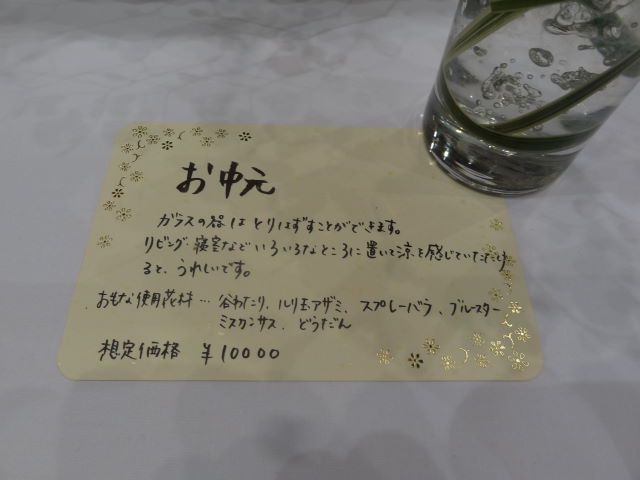 お中元
ガラスの器はとりはずすことができます。
リビング、寝室などいろいろなところに置いて涼を感じていただけ
ると、うれしいです。
おもな使用花材… 谷わたり、ルリ玉アザミ、スプレーバラ、ブルースター
ミスカンサス、どうだん
想定価格 ¥10000